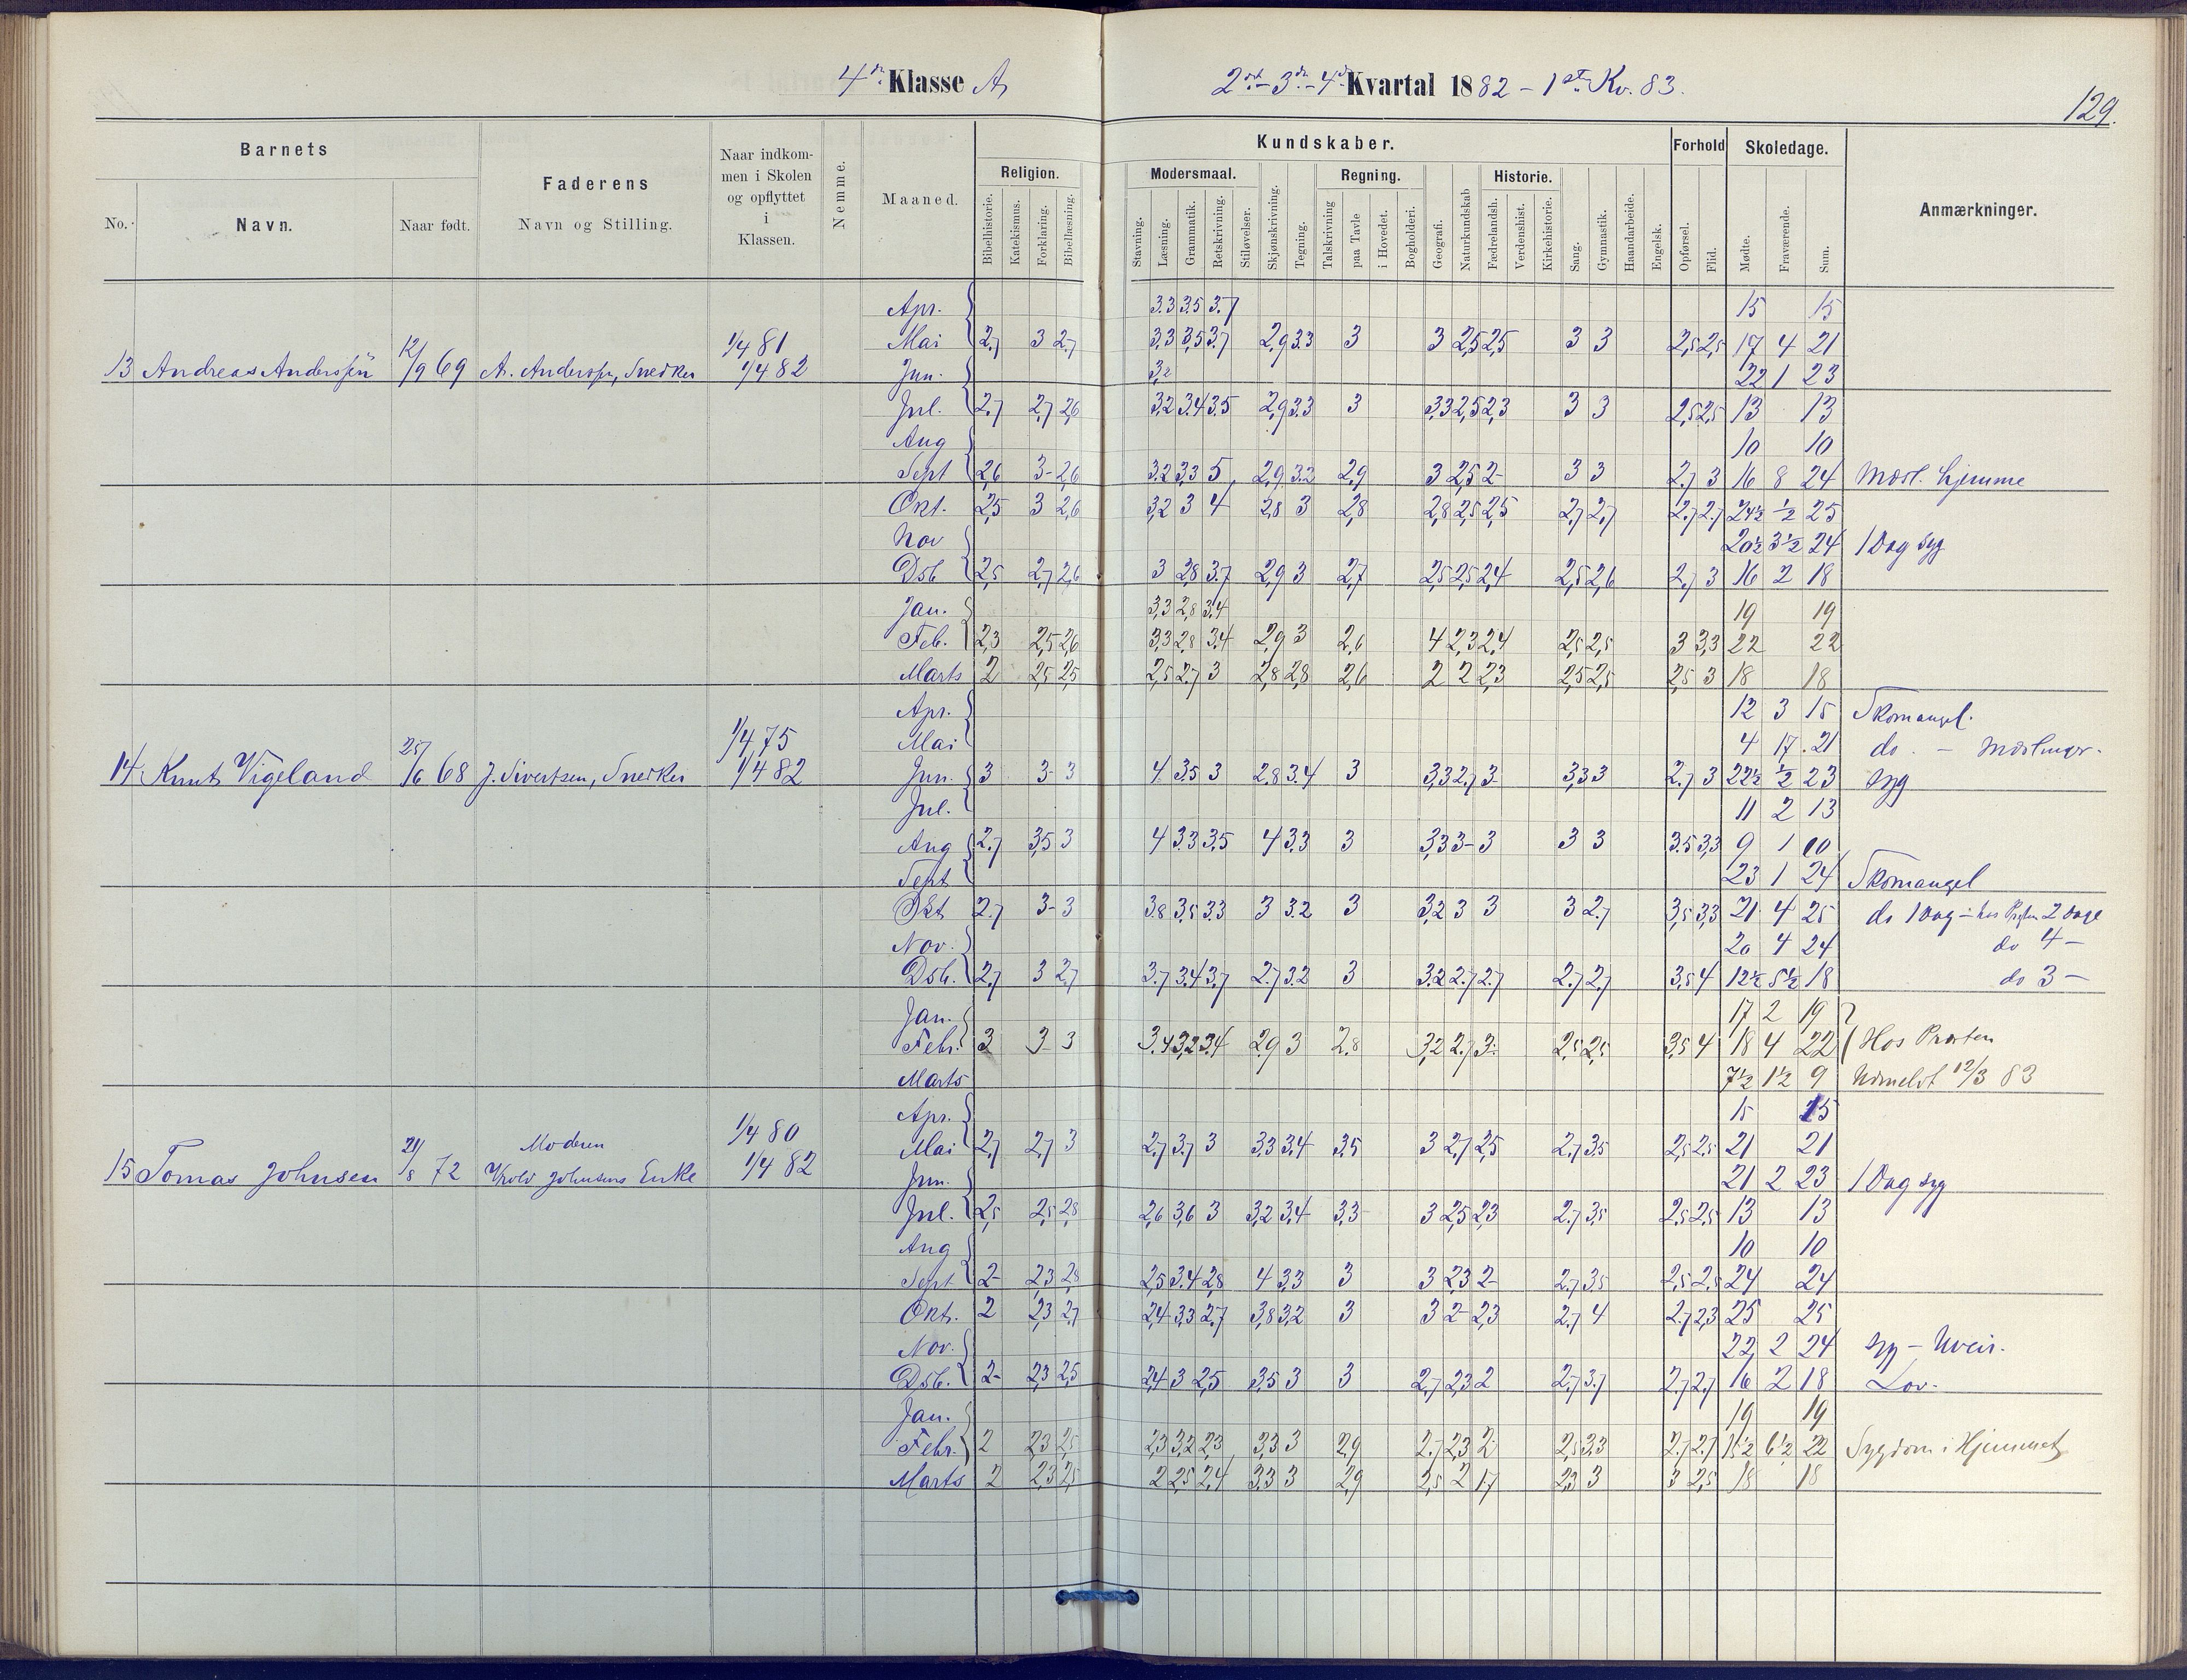 4de Klasse A
2det - 3die - 4de Kvartal 1882 - 1ste Kv. 83.
129.
Barnets
No.
Navn.
Naar født.
Faderens
Navn og Stilling.
Naar indkom-
men i Skolen
og opflyttet
i
Klassen.
Nemme.
Maaned.
Kundskaber.
Religion.
Bibelhistorie.
Katekismus.
Forklaring.
Bibellæsning.
Modersmaal.
Stavning.
Læsning.
Grammatik.
Retskrivning.
Stiløvelser.
Skjønskrivning.
Tegning.
Regning.
Talskrivning
paa Tavle
i Hovedet.
Bogholderi.
Geografi.
Naturkundskab
Historie.
Fædrelandsh.
Verdenshist.
Kirkehistorie.
Sang.
Gymnastik.
Haandarbeide.
Engelsk.
Forhold
Opførsel.
Flid.
Skoledage.
Mødte.
Fraværende.
Sum.
Anmærkninger.
13 Andreas Anderssen 12/9 69 A. Anderssen, Snedker 1/4 81 1/4 82
Apr. 3.3 3.5 3.7 15 15
Mai 2,7 3 2,7 3,3 3,5 3,7 2,9 3.3 3 3 2,5 2,5 3 3 2,5 2,5 17 4 21
Jun. 3,2 22 1 23
Jul. 2,7 2,7 2,6 3,2 3,4 3,5 2,9 3.3 3 3,3 2,5 2,3 3 3 2,5 2,5 13 13
Aug 10 10
Sept 2,6 3- 2,6 3.2 3,3 5 2,9 3.2 2,9 3 2,5 2- 3 3 2,7 3 16 8 24 Mæsl. hjemme
Okt. 2,5 3 2,6 3,2 3 4 2,8 3 2,8 2,8 2,5 2,5 2,7 2,7 2,7 2,7 24½ ½ 25
Nov 20½ 3½ 24 1 Dag syg
Dsb 2,5 2,7 2,6 3 2,8 3,7 2,9 3 2,7 2,5 2,5 2,4 2,5 2,6 2,7 3 16 2 18
Jan. 3,3 2,8 3,4 19 19
Feb. 2,3 2,5 2,6 3,3 2,8 3,4 2,9 3 2,6 4 2,3 2,4 2,5 2,5 3 3,3 22 22
Marts 2 2,5 2,5 2,5 2,7 3 2,8 2,8 2,6 2 2 2,3 2,5 2,5 2,5 3 18 18
14 Knut Vigeland 25/6 68 J. Sivertsen, Snedker 1/4 75 1/4 82
Apr. 12 3 15 Skomangel.
Mai 4 17 21 do. - Mæslinger.
Jun. 3 3- 3 4 3.5 3 2.8 3.4 3 3,3 2,7 3- 3,3 3 2,7 3 22½ ½ 23 Syg
Jul. 11 2 13
Aug 2,7 3,5 3 4 3.3 3.5 4 3,3 3 3,3 3- 3 3 3 3.5 3,3 9 1 10
Sept 23 1 24 Skomangel
Okt 2.7 3- 3 3.8 3,5 3.3 3 3.2 3 3,2 3 3 3 2.7 3,5 3,3 21 4 25 do 1 Dag - hos Præsten 2 Dage
Nov. 20 4 24 do 4 -
Dsb. 2,7 3 2,7 3.7 3,4 3,7 2.7 3.2 3 3.2 2.7 2.7 2.7 2,7 3,5 4 12½ 5½ 18 do 3 -
Jan. 17 2 19
Febr. 3 3- 3 3.4 3,2 3,4 2,9 3 2.8 3,2 2.7 3- 2,5 2,5 3,5 4 18 4 22 Hos Præsten
Marts 7½ 1½ 9 Udmeldt 12/3 83
15 Tomas Johnsen 21/8 72 Moderen
Johnsens Enke 1/4 80 1/4 82
Apr. 15 15
Mai 2,7 2,7 3 2,7 3,7 3 3,3 3.4 3,5 3 2,7 2,5 2,7 3,5 2,5 2,5 21 21
Jun. 21 2 23 1 Dag syg
Jul. 2,5 2,5 2,8 2,6 3,6 3 3,2 3,4 3,3 3 2,5 2,3 2,7 3,5 2,5 2,5 13 13
Aug 10 10
Sept 2- 2,3 2,8 2,5 3.4 2,8 4 3,3 3 3 2,3 2- 2,7 3,5 2,5 2,5 24 24
Okt. 2 2,3 2,7 2,4 3,3 2,7 3,8 3,2 3 3 2- 2,3 2,7 4 2.7 2,3 25 25
Nov. 22 2 24 Syg - Uveir.
Dsb. 2- 2,3 2,5 2,4 3 2,5 3,5 3 3 2,7 2,3 2 2,7 3,7 2,7 2,7 16 2 18 Lov.
Jan. 19 19
Febr. 2 2,3 2,5 2,3 3,2 2,3 3,3 3 2,9 2.7 2,3 2 2,5 3,3 2.7 2,7 15½ 6½ 22 Sygdom i Hjemmet
Marts 2 2,3 2,5 2 2,5 2,4 3,3 3 2,9 2,5 2 1,7 2,3 3 3 2,5 18 18